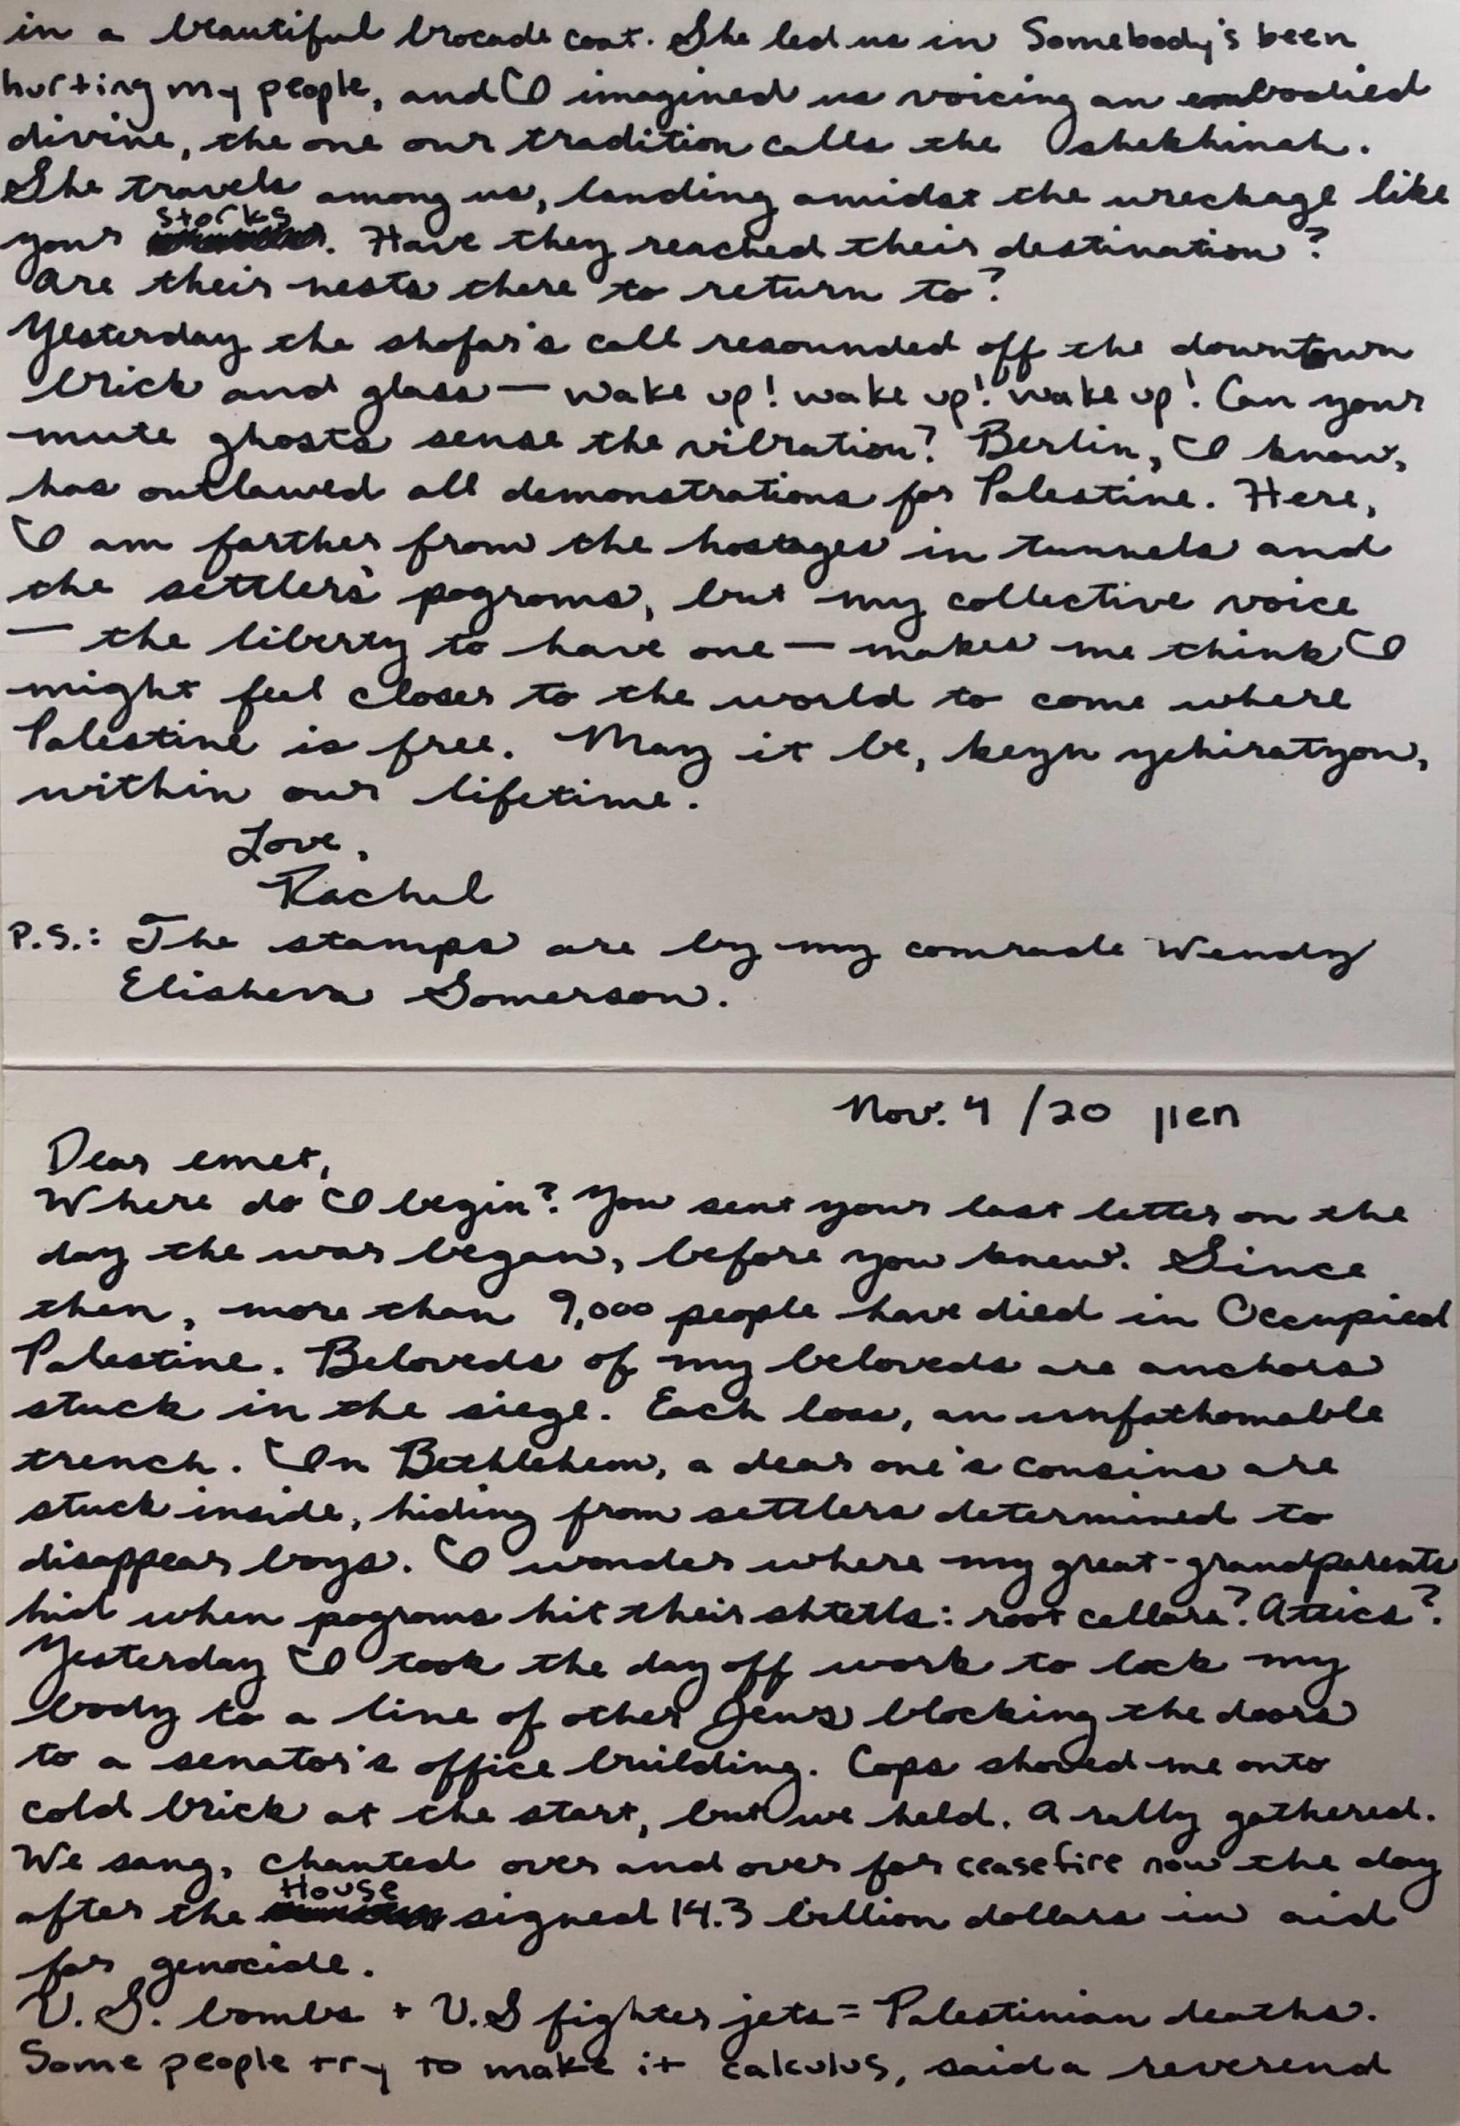 in a beautiful brocade coat. She led us in Somebody's been
hurting my people, and I imagined us voicing an embodied
divine, the one our tradition calls the shekhinah.
She travels among us, landing amidst the wreckage like
your storks. Have they reached their destination?
Are their nests there to return to?
Yesterday the shofar's call resounded off the downtown
brick and glass — wake up! wake up! wake up! Can your
mute ghosts sense the vibration? Berlin, I know,
has outlawed all demonstrations for Palestine. Here,
I am farther from the hostages in tunnels and
the settlers' pogroms, but my collective voice
— the liberty to have one — makes me think I
might feel closer to the world to come where
Palestine is free. May it be, keyn yehiratzon,
within our lifetime.
Love,
Rachel
P.S.: The stamps are by my comrade Wendy
Elisheva Somerson.
Nov. 4 / 20 חשון
Dear emet,
Where do I begin? You sent your last letter on the
day the war began, before you knew. Since
then, more than 9,000 people have died in Occupied
Palestine. Beloveds of my beloveds are anchors
stuck in the siege. Each loss, an unfathomable
trench. In Bethlehem, a dear one's cousins are
stuck inside, hiding from settlers determined to
disappear boys. I wonder where my great-grandparents
hid when pogroms hit their shtetls: root cellars? Attics?
Yesterday I took the day off work to lock my
body to a line of other Jews blocking the doors
to a senator's office building. Cops shoved me onto
cold brick at the start, but we held. A rally gathered.
We sang, chanted over and over for ceasefire now the day
after the House signed 14.3 billion dollars in aid
for genocide.
U.S. bombs + U.S fighter jets = Palestinian deaths.
Some people try to make it calculus, said a reverend